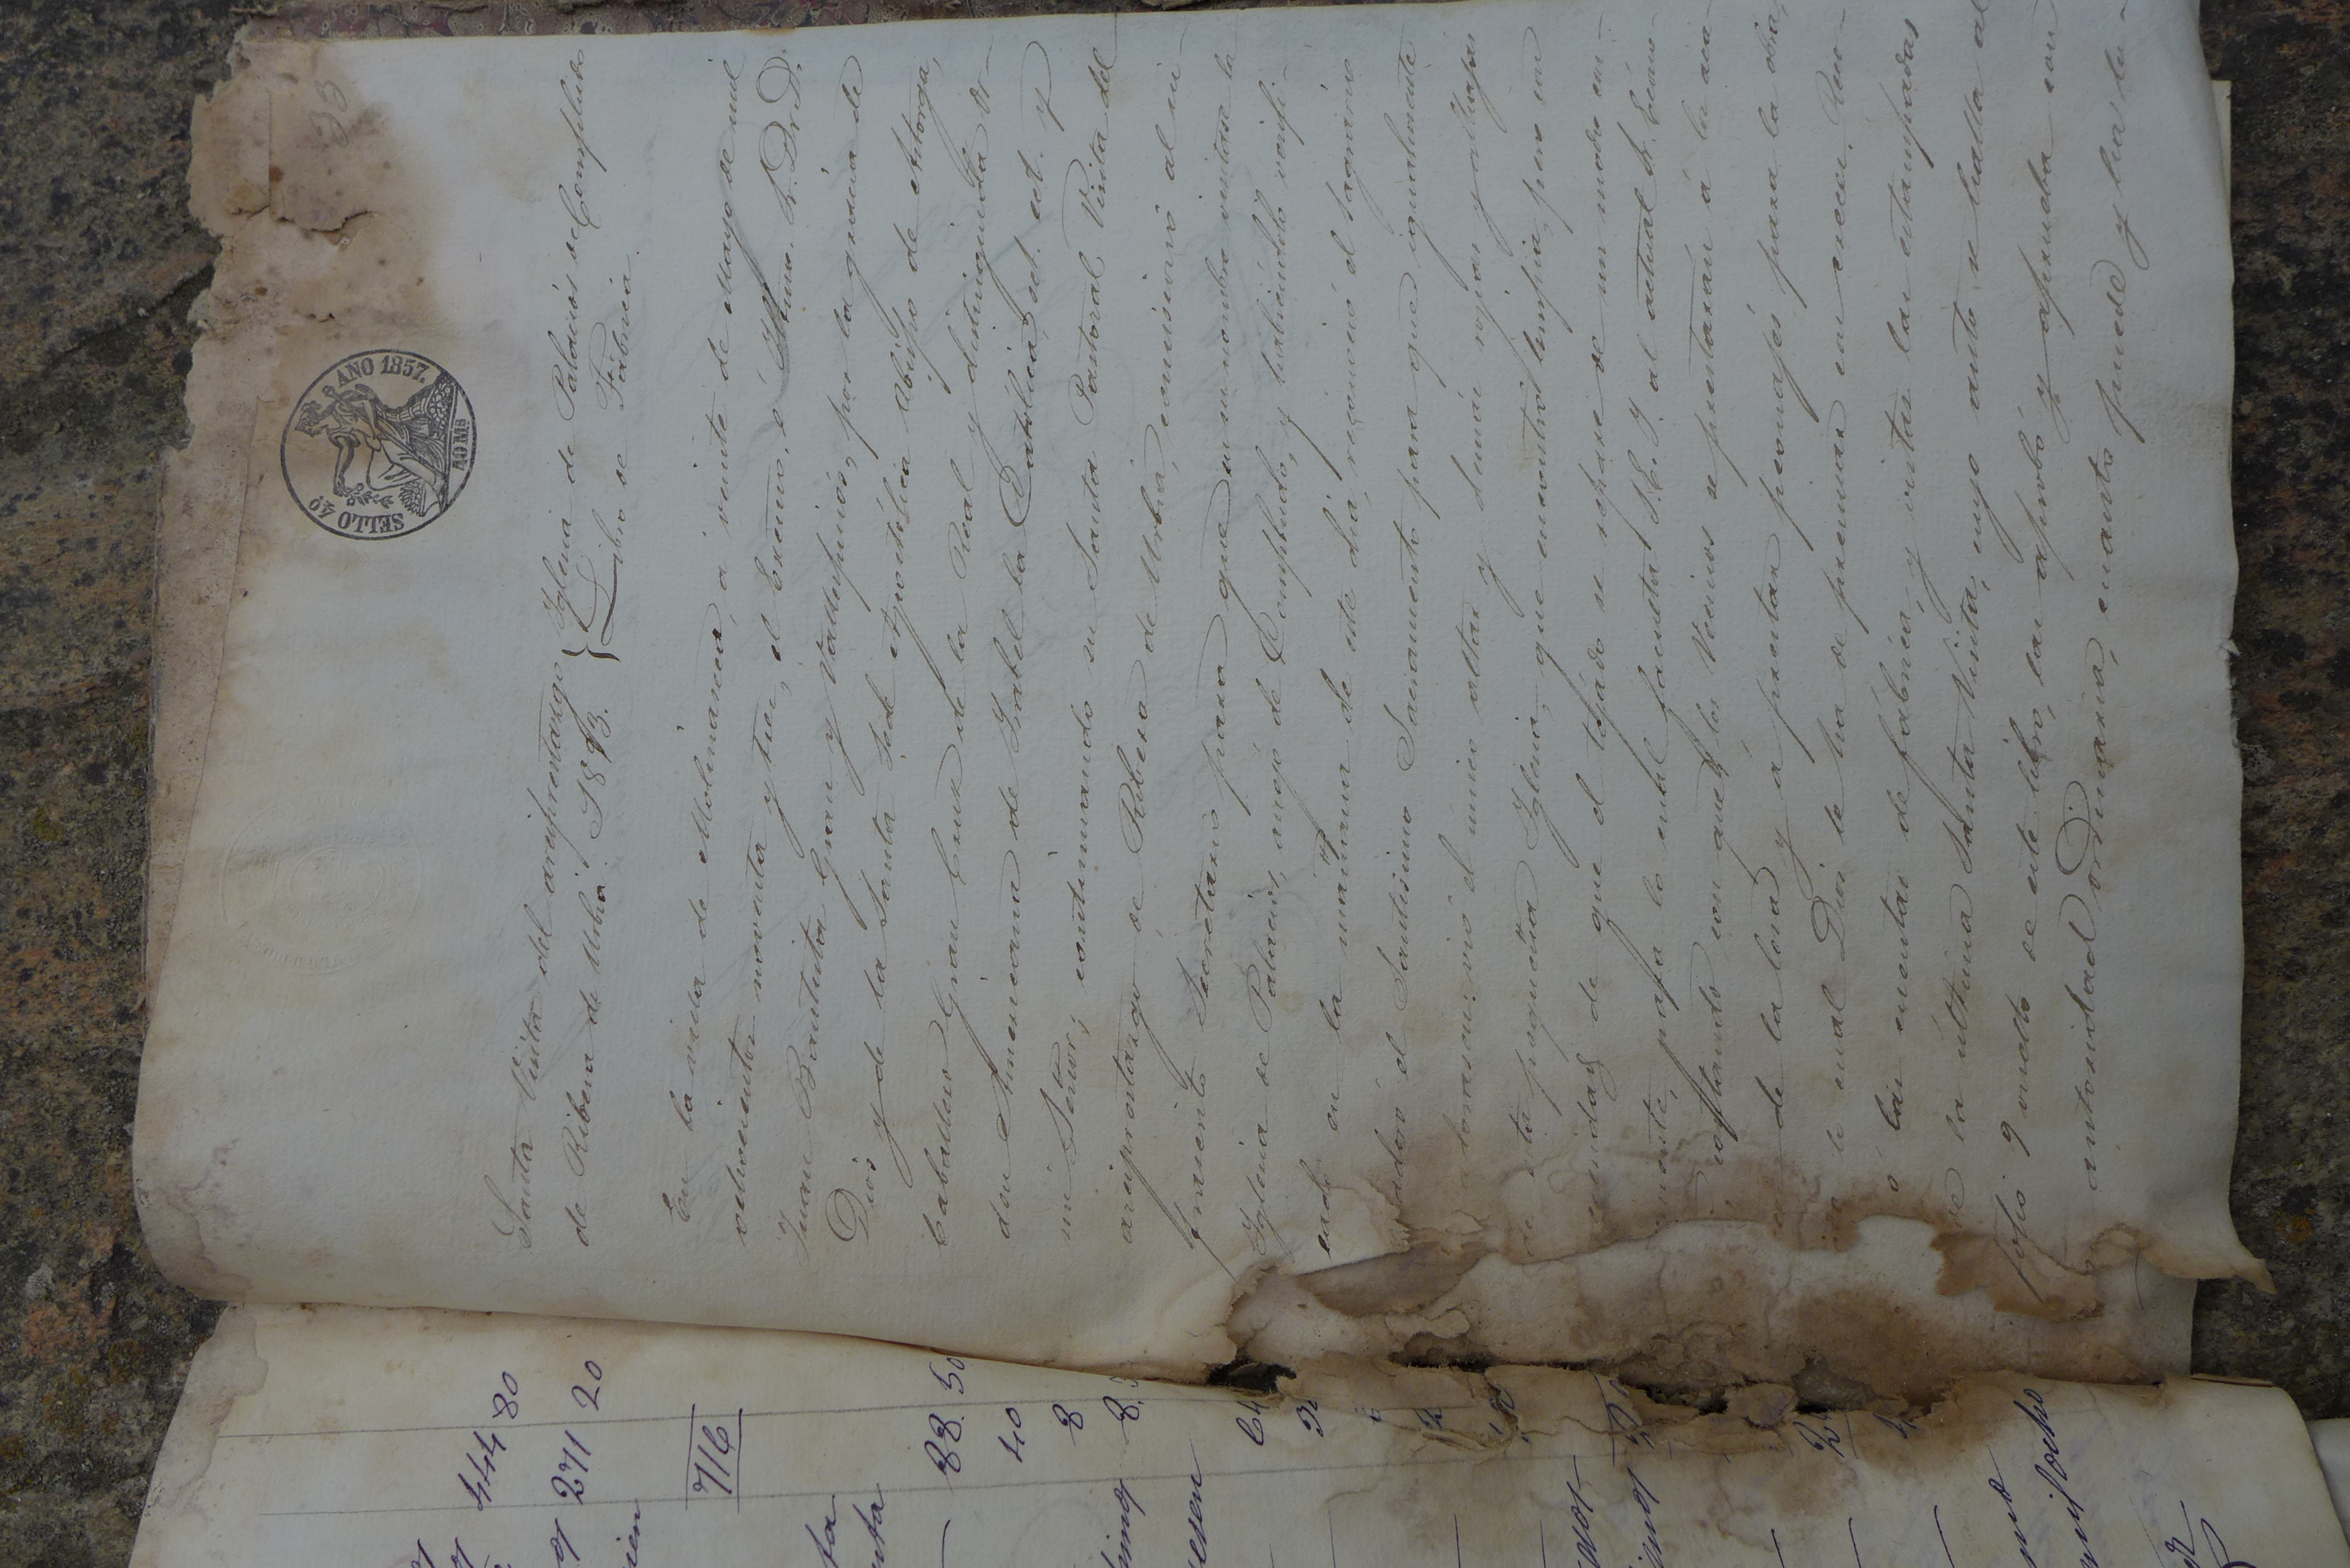 33
SELLO 4º AÑO 1857.
40 Ms
Santa Visita del arciprestazgo } Iglesia de Palacios de Compludo
de Ribera de Urbia. 1893. } Libro de Fábrica.
En la villa de Molinaseca, a veinte de Mayo de mil
ochocientos noventa y tres, el Excmo. é Illmo. Sr. Dr. D.
Juan Bautista Grau y Vallespinós, por la gracia de
Dios y de la Santa Sede Apostólica Obispo de Astorga,
Caballero Gran Cruz de la Real y distinguida Or-
den Americana de Isabel la Católica, ect. ect. y
mi Señor; continuando su Santa Pastoral Visita del
arciprestazgo de Ribera de Urbia, comisionó al in-
frascrito Secretario para que en su nombre visitara la
Iglesia de Palacios, anejo de Compludo, y habiéndolo verifi-
cado en la mañana de este dia, reconoció el Sagrario
el Santísimo Sacramento para que igualmente
adorasen; vió el único altar y demás ropas y alhajas
de esta pequeña Iglesia, que encontró limpia, pero con
necesidad de que el tejado se repare de un modo con-
para lo cual facultaba S. E. I. al actual Sr. Ecónomo
contando con que los Vecinos se prestarán á la aca-
de la losa y á prestar peonajes para la obra,
lo cual Dios les ha de premiar con creces. Pasó
á las cuentas de fábrica, y vistas las estampadas
la última Santa Visita, cuyo auto se halla al
folio 9 vuelto de este libro, las aprobó y aprueba con
autoridad ordinaria, cuanto puede y ha lu-
444 80
271 20
716
88. 50
40
8
8.